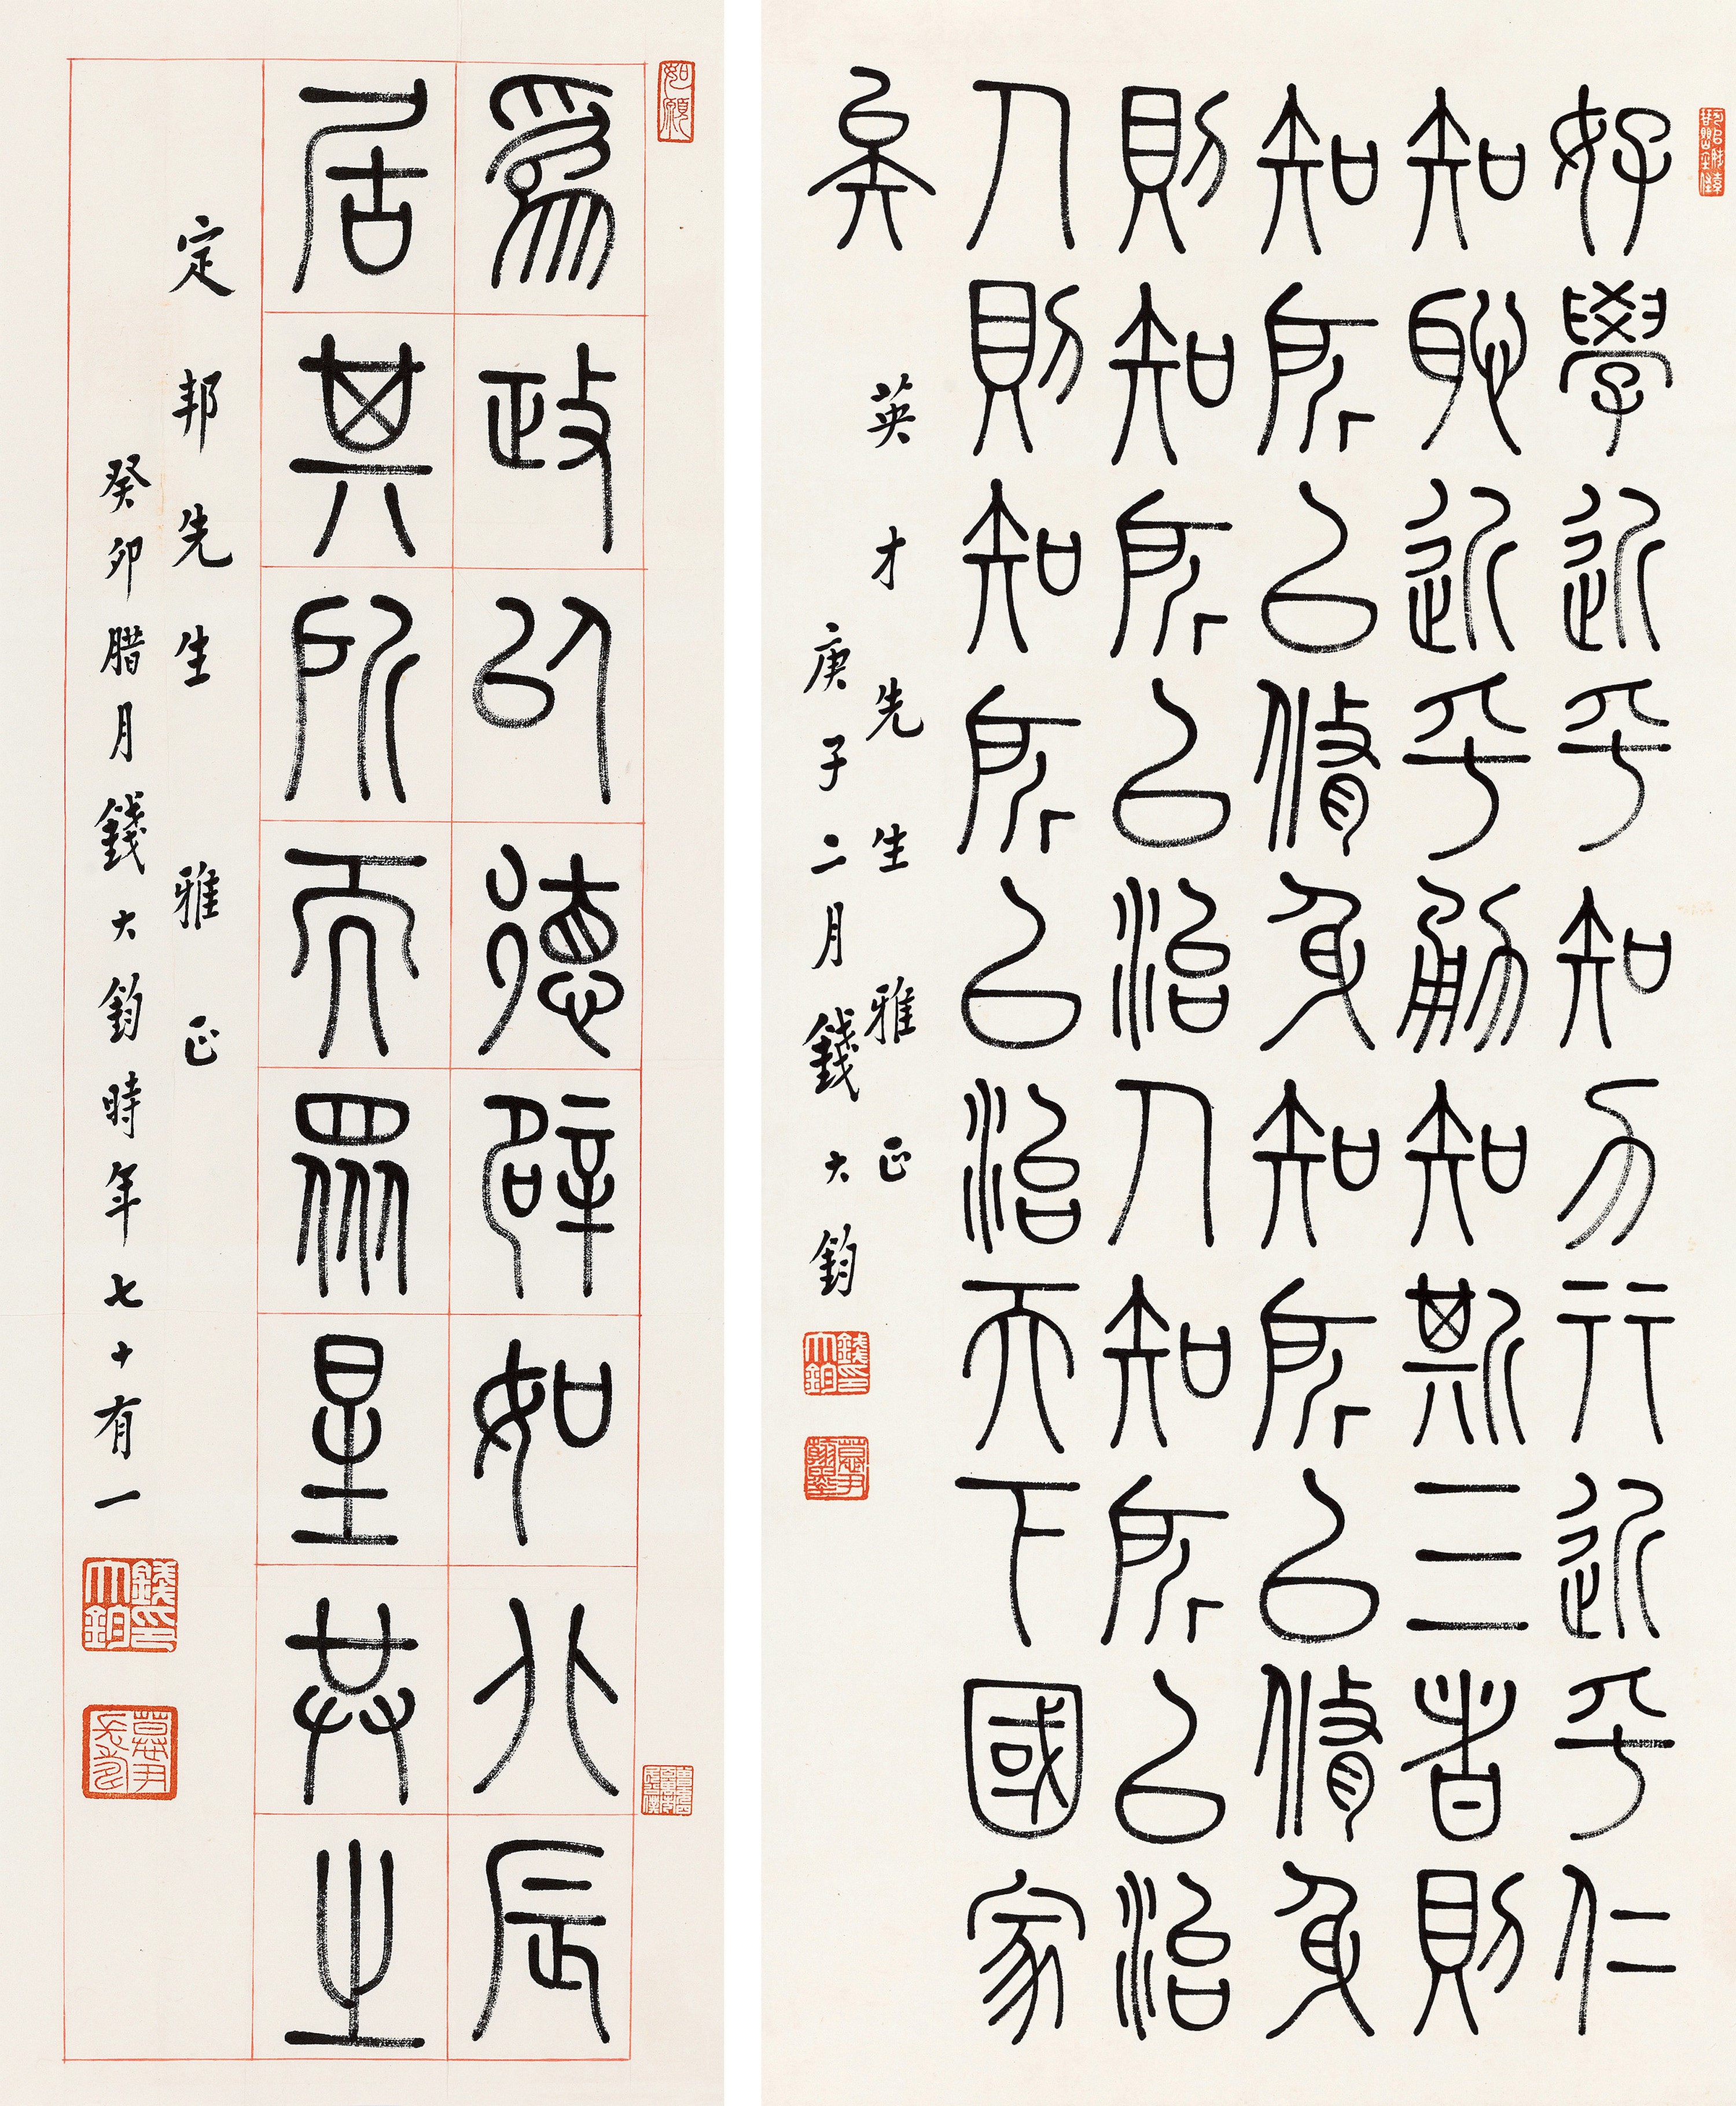 好學近乎知力行近乎仁
知恥近乎勇知斯三者則
知所以脩身知所以脩身
則知所以治人知所以治
人則知所以治天下國家
矣
英才先生雅正
庚子二月錢大鈞
錢大鈞印
慕尹翰墨
如願
爲政以德辟如北辰
居其所而眾星共之
定邦先生雅正
癸卯腊月錢大鈞時年七十有一
錢大鈞印